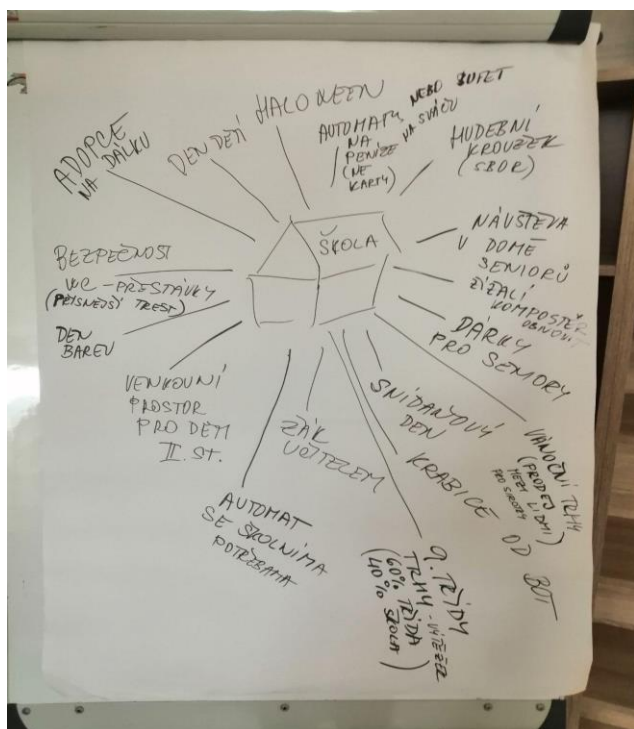 ADOPCE
NA DÁLKU
DEN DĚTÍ
HALOWEEN
AUTOMATY NEBO BUFET
NA NA SVAČU
PENÍZE
(NE
KARTY)
HUDEBNÍ
KROUŽEK
(SBOR)
ŠKOLA
NÁVŠTĚVA
V DOMĚ
SENIORŮ
ŽÍŽALÍ
KOMPOSTÉR
OBNOVIT
DÁRKY
PRO SENIORY
VÁNOČNÍ TRHY
(PRODEJ
MEZI LIDMI
PRO SIROTKY
KRABICE OD BOT
SNÍDAŇOVÝ
DEN
9. TŘÍDY
TRHY - VÝTĚŽEK
(60% TŘÍDA
40% ŠKOLA)
ŽÁK
UČITELEM
AUTOMAT
SE ŠKOLNÍMA
POTŘEBAMA
VENKOVNÍ
PROSTOR
PRO DĚTI
II. ST.
DEN
BAREV
BEZPEČNOST
WC - PŘESTÁVKY
(PŘÍSNEJŠÍ TREST)